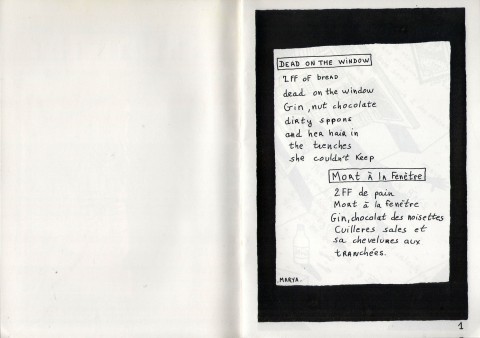 DEAD ON THE WINDOW
2FF OF BREAD
dead on the window
Gin, nut chocolate
dirty sppons
and her hair in
the trenches
she couldn't keep
MORT à la Fenêtre
2FF de pain
Mort à la fenêtre
Gin, chocolat des noisettes
Cuilleres sales et
sa chevelure aux
tranchées.
MARYA.
1